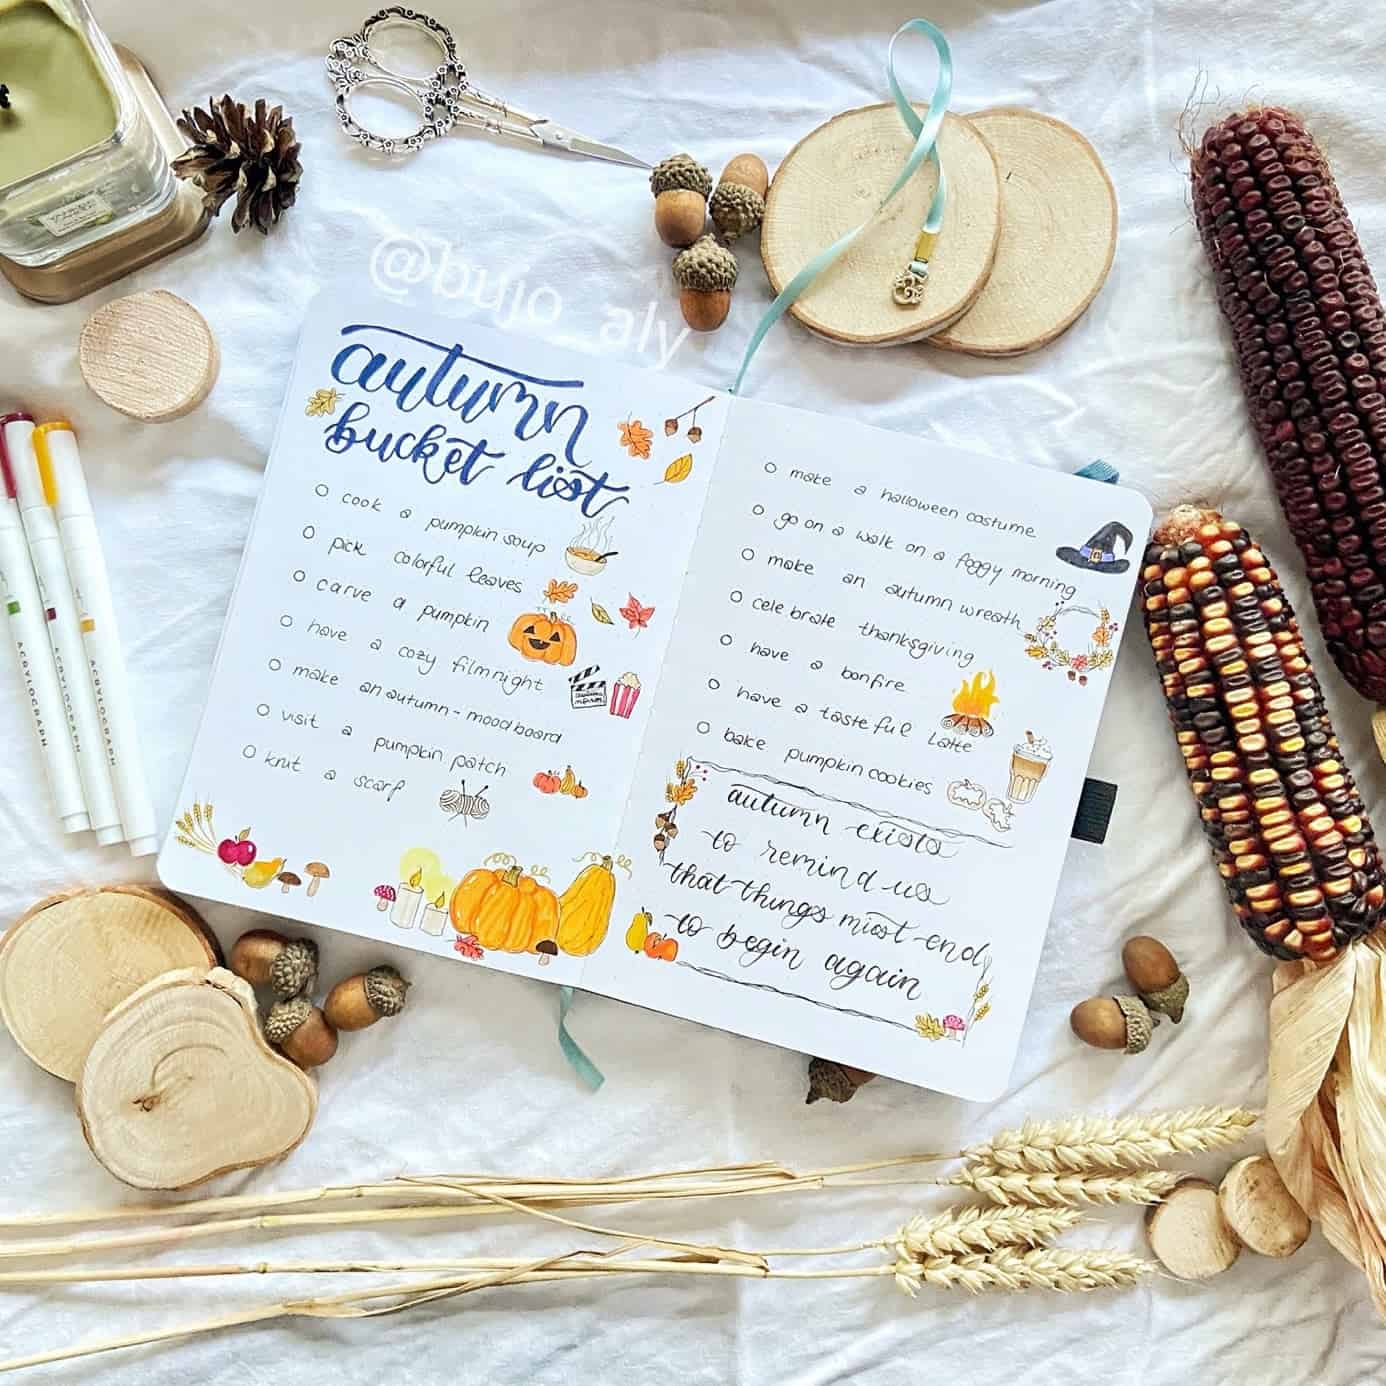 @bujo_aly
autumn
bucket list
cook a pumpkin soup
pick colorful leaves
carve a pumpkin
have a cozy filmnight
make an autumn-moodboard
visit a pumpkin patch
knit a scarf
make a halloween costume
go on a walk on a foggy morning
make an autumn wreath
celebrate thanksgiving
have a bonfire
have a tasteful Latte
bake pumpkin cookies
autumn exists
to remind us
that things must end
to begin again
ACRYLOGRAPH
ACRYLOGRAPH
ACRYLOGRAPH